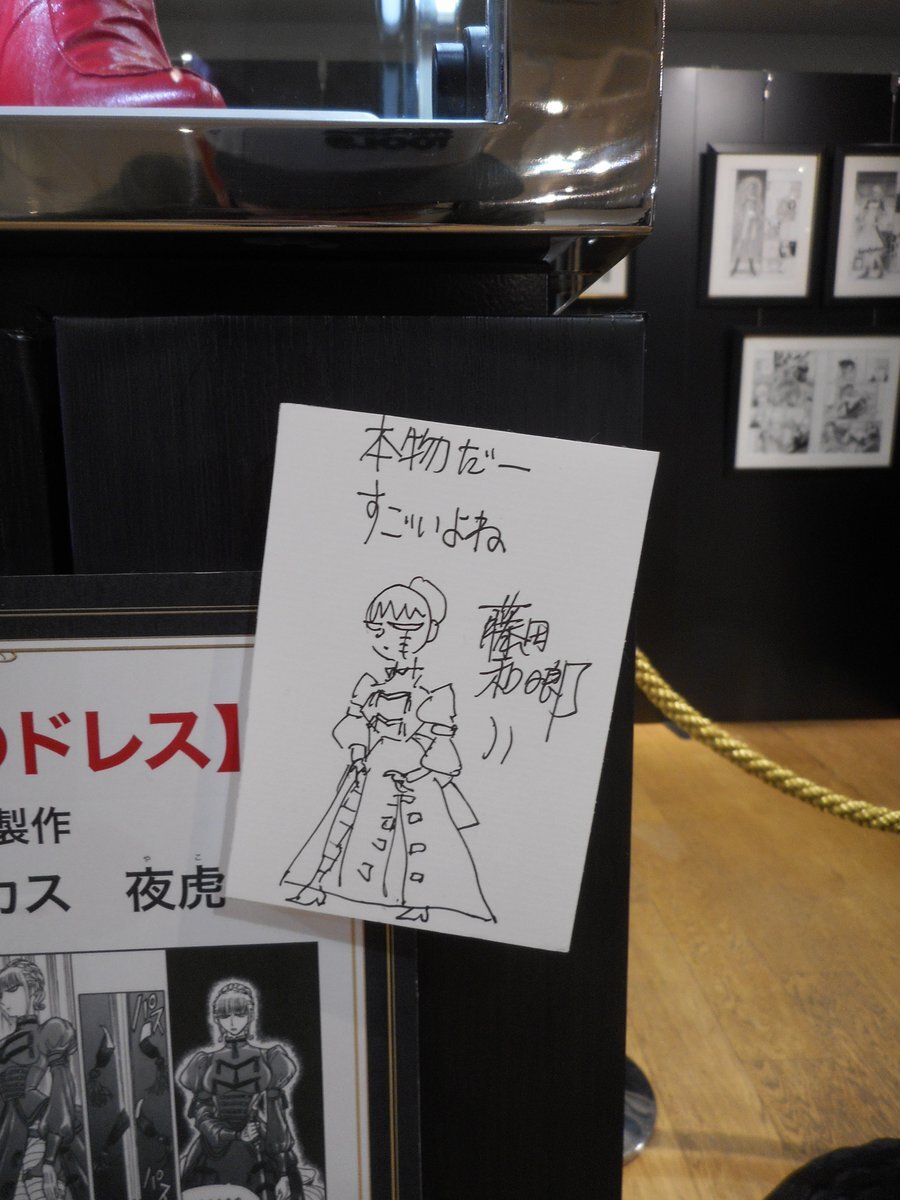 本物だー
すごいよね
藤田
和日郎
のドレス】
製作
カス 夜虎
やこ
パス
パス